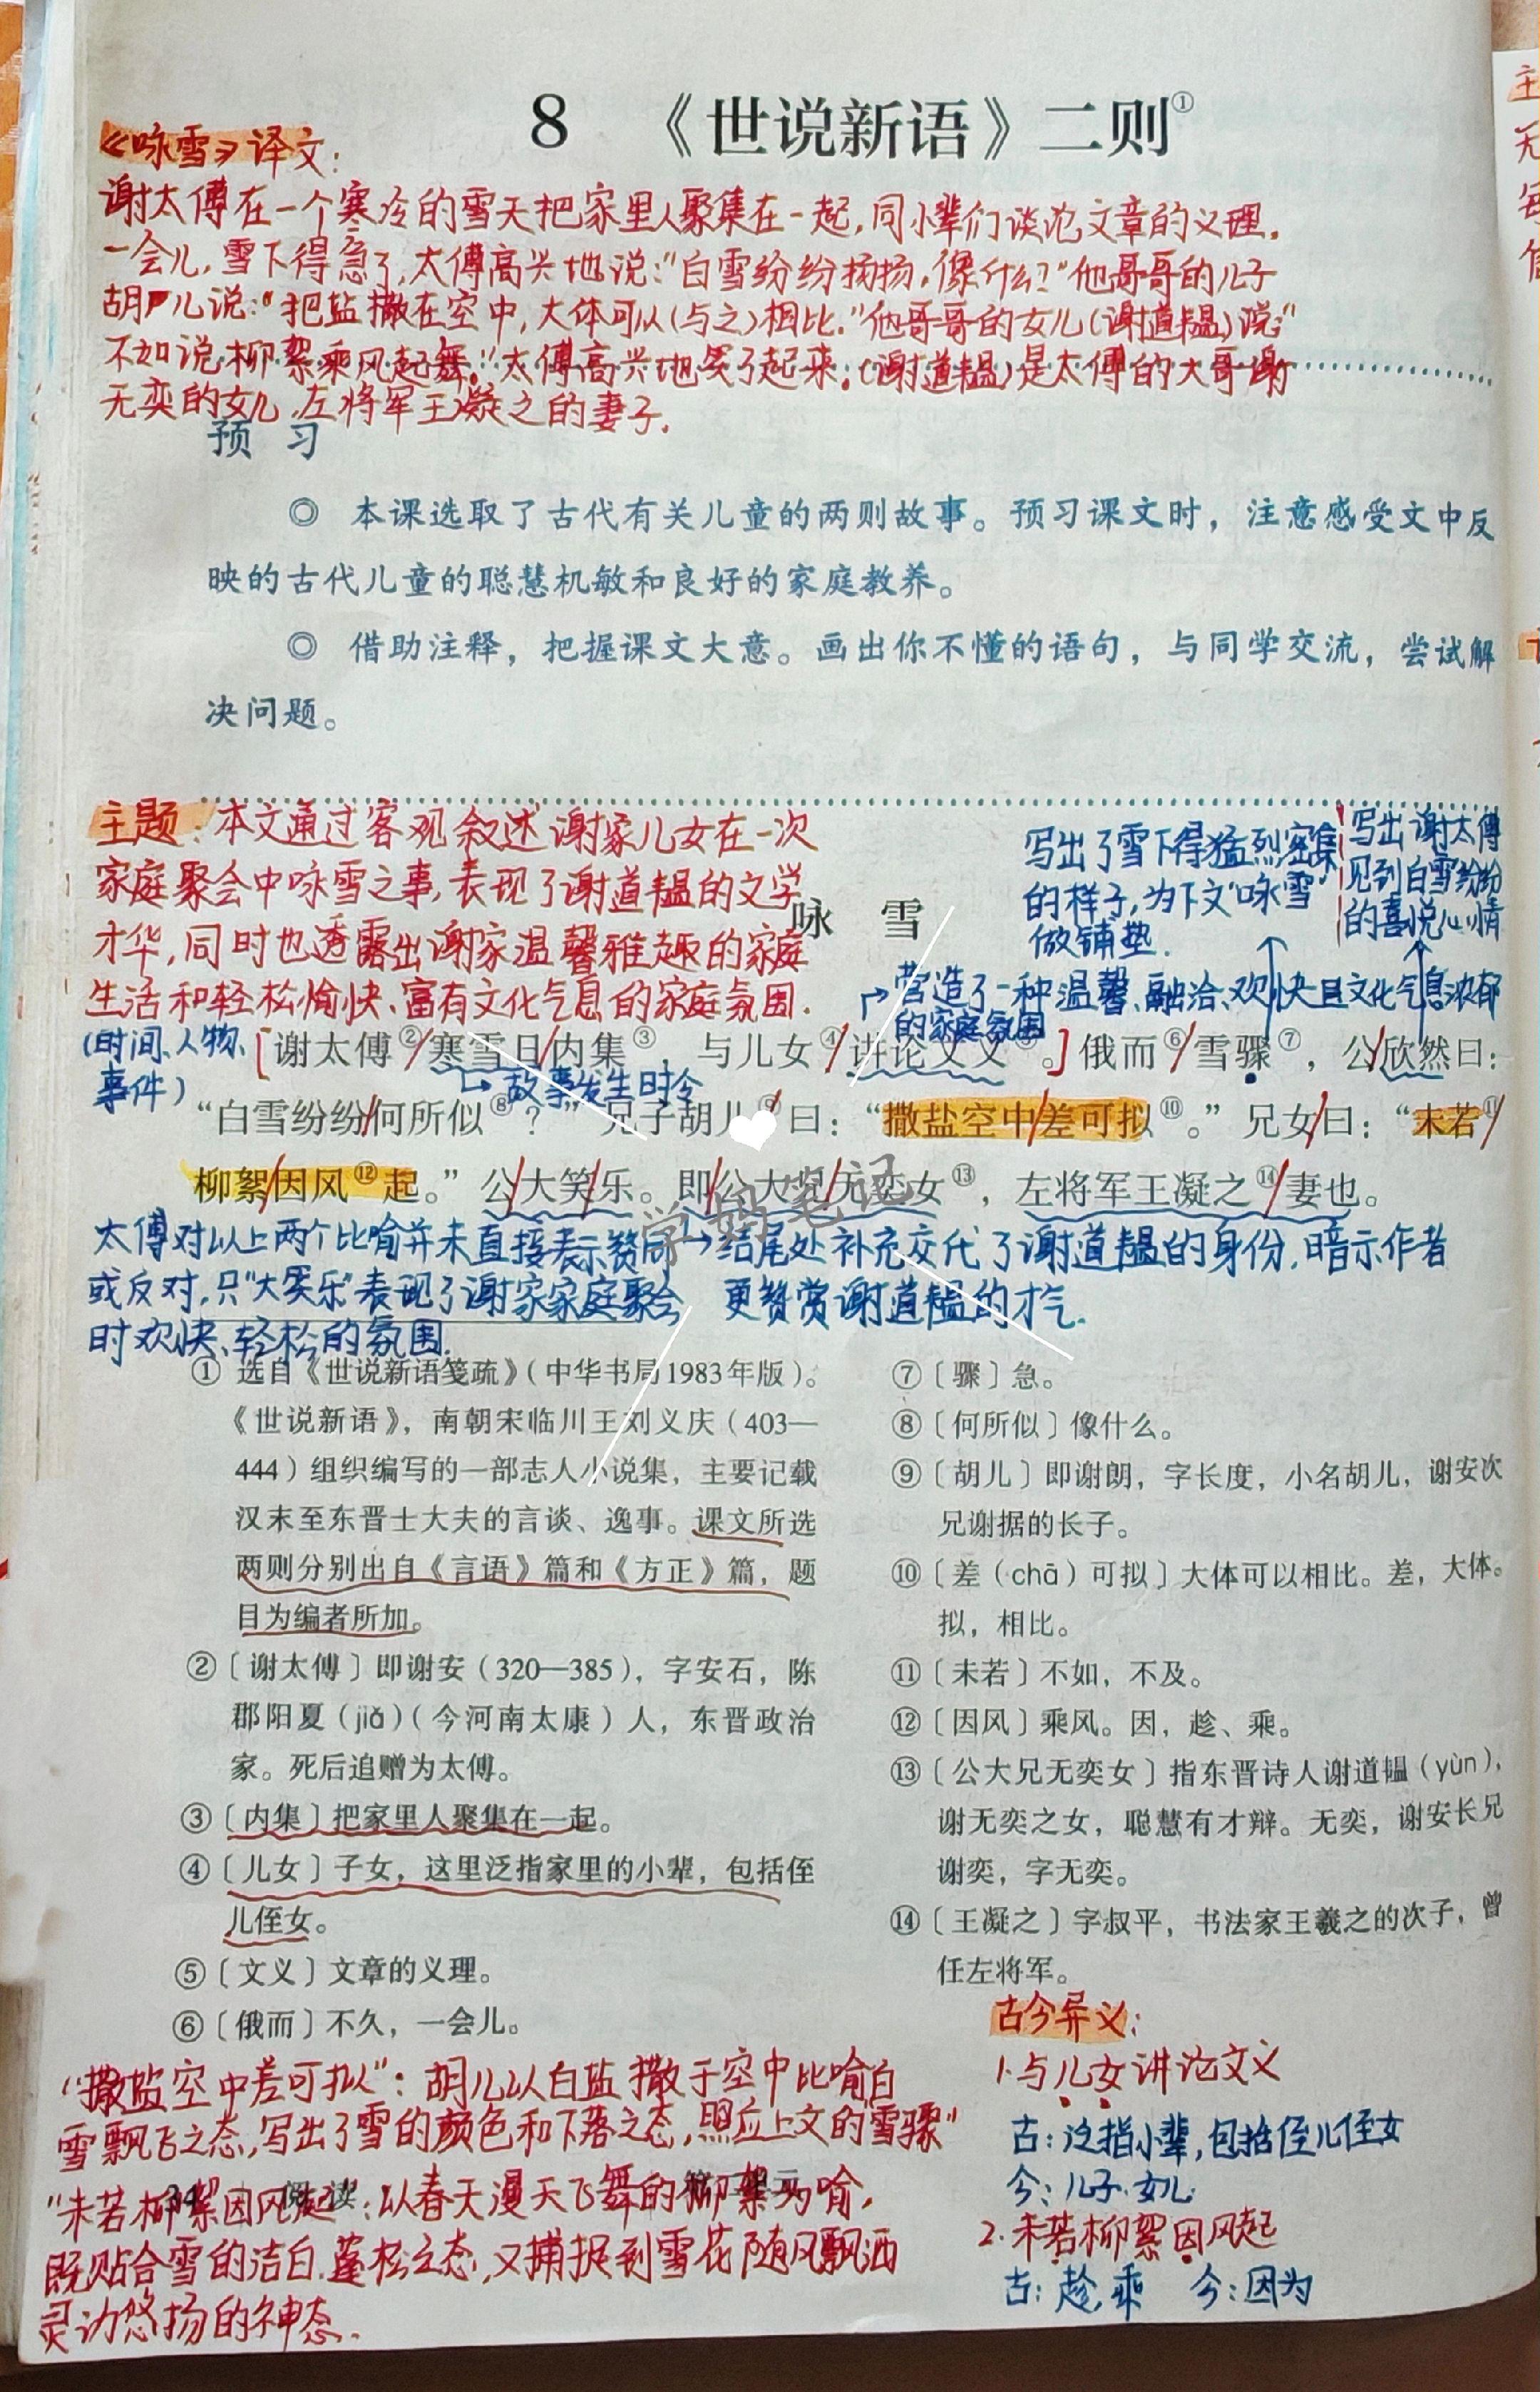 8 《世说新语》二则①
《咏雪》译文：
谢太傅在一个寒冷的雪天把家里人聚集在一起，同小辈们谈论文章的义理。
一会儿，雪下得急了，太傅高兴地说："白雪纷纷扬扬，像什么？"他哥哥的儿子
胡儿说："把盐撒在空中，大体可以(与之)相比。"他哥哥的女儿(谢道韫)说："
不如说柳絮乘风起舞。"太傅高兴地笑了起来。(谢道韫)是太傅的大哥谢
无奕的女儿，左将军王凝之的妻子.
预 习
◎ 本课选取了古代有关儿童的两则故事。预习课文时，注意感受文中反
映的古代儿童的聪慧机敏和良好的家庭教养。
◎ 借助注释，把握课文大意。画出你不懂的语句，与同学交流，尝试解
决问题。
主题：本文通过客观叙述谢家儿女在一次
家庭聚会中咏雪之事，表现了谢道韫的文学
才华，同时也透露出谢家温馨雅趣的家庭
生活和轻松愉快、富有文化气息的家庭氛围.
咏 雪
写出了雪下得猛烈密集
的样子，为下文"咏雪"
做铺垫.
写出谢太傅
见到白雪纷纷
的喜悦心情
营造了一种温馨、融洽、欢快且文化气息浓郁
的家庭氛围
(时间、人物、
事件)
谢太傅②/寒雪日/内集③，与儿女④/讲论文义。俄而⑥/雪骤⑦，公/欣然曰：
故事发生时令
"白雪纷纷/何所似⑧？"兄子胡儿⑨/曰："撒盐空中/差可拟⑩。"兄女/曰："未若⑪/
柳絮/因风⑫起。"公/大笑/乐。即/公大兄/无奕女⑬，左将军王凝之⑭/妻也。
学妈笔记
太傅对以上两个比喻并未直接表示赞同
或反对，只"大笑乐"表现了谢家家庭聚会
时欢快、轻松的氛围.
→结尾处补充交代了谢道韫的身份，暗示作者
更赞赏谢道韫的才气.
① 选自《世说新语笺疏》（中华书局1983年版）。
《世说新语》，南朝宋临川王刘义庆（403—
444）组织编写的一部志人小说集，主要记载
汉末至东晋士大夫的言谈、逸事。课文所选
两则分别出自《言语》篇和《方正》篇，题
目为编者所加。
②〔谢太傅〕即谢安（320—385），字安石，陈
郡阳夏（jiǎ）（今河南太康）人，东晋政治
家。死后追赠为太傅。
③〔内集〕把家里人聚集在一起。
④〔儿女〕子女，这里泛指家里的小辈，包括侄
儿侄女。
⑤〔文义〕文章的义理。
⑥〔俄而〕不久，一会儿。
⑦〔骤〕急。
⑧〔何所似〕像什么。
⑨〔胡儿〕即谢朗，字长度，小名胡儿，谢安次
兄谢据的长子。
⑩〔差（chā）可拟〕大体可以相比。差，大体。
拟，相比。
⑪〔未若〕不如，不及。
⑫〔因风〕乘风。因，趁、乘。
⑬〔公大兄无奕女〕指东晋诗人谢道韫（yùn），
谢无奕之女，聪慧有才辩。无奕，谢安长兄
谢奕，字无奕。
⑭〔王凝之〕字叔平，书法家王羲之的次子，曾
任左将军。
"撒盐空中差可拟"：胡儿以白盐撒于空中比喻白
雪飘飞之态，写出了雪的颜色和下落之态，照应上文的"雪骤"
"未若柳絮因风起"：以春天漫天飞舞的柳絮为喻，
既贴合雪的洁白、蓬松之态，又捕捉到雪花随风飘洒
灵动悠扬的神态.
34 阅 读
古今异义：
1.与儿女讲论文义
古：泛指小辈，包括侄儿侄女
今：儿子.女儿
2.未若柳絮因风起
古：趁，乘 今：因为